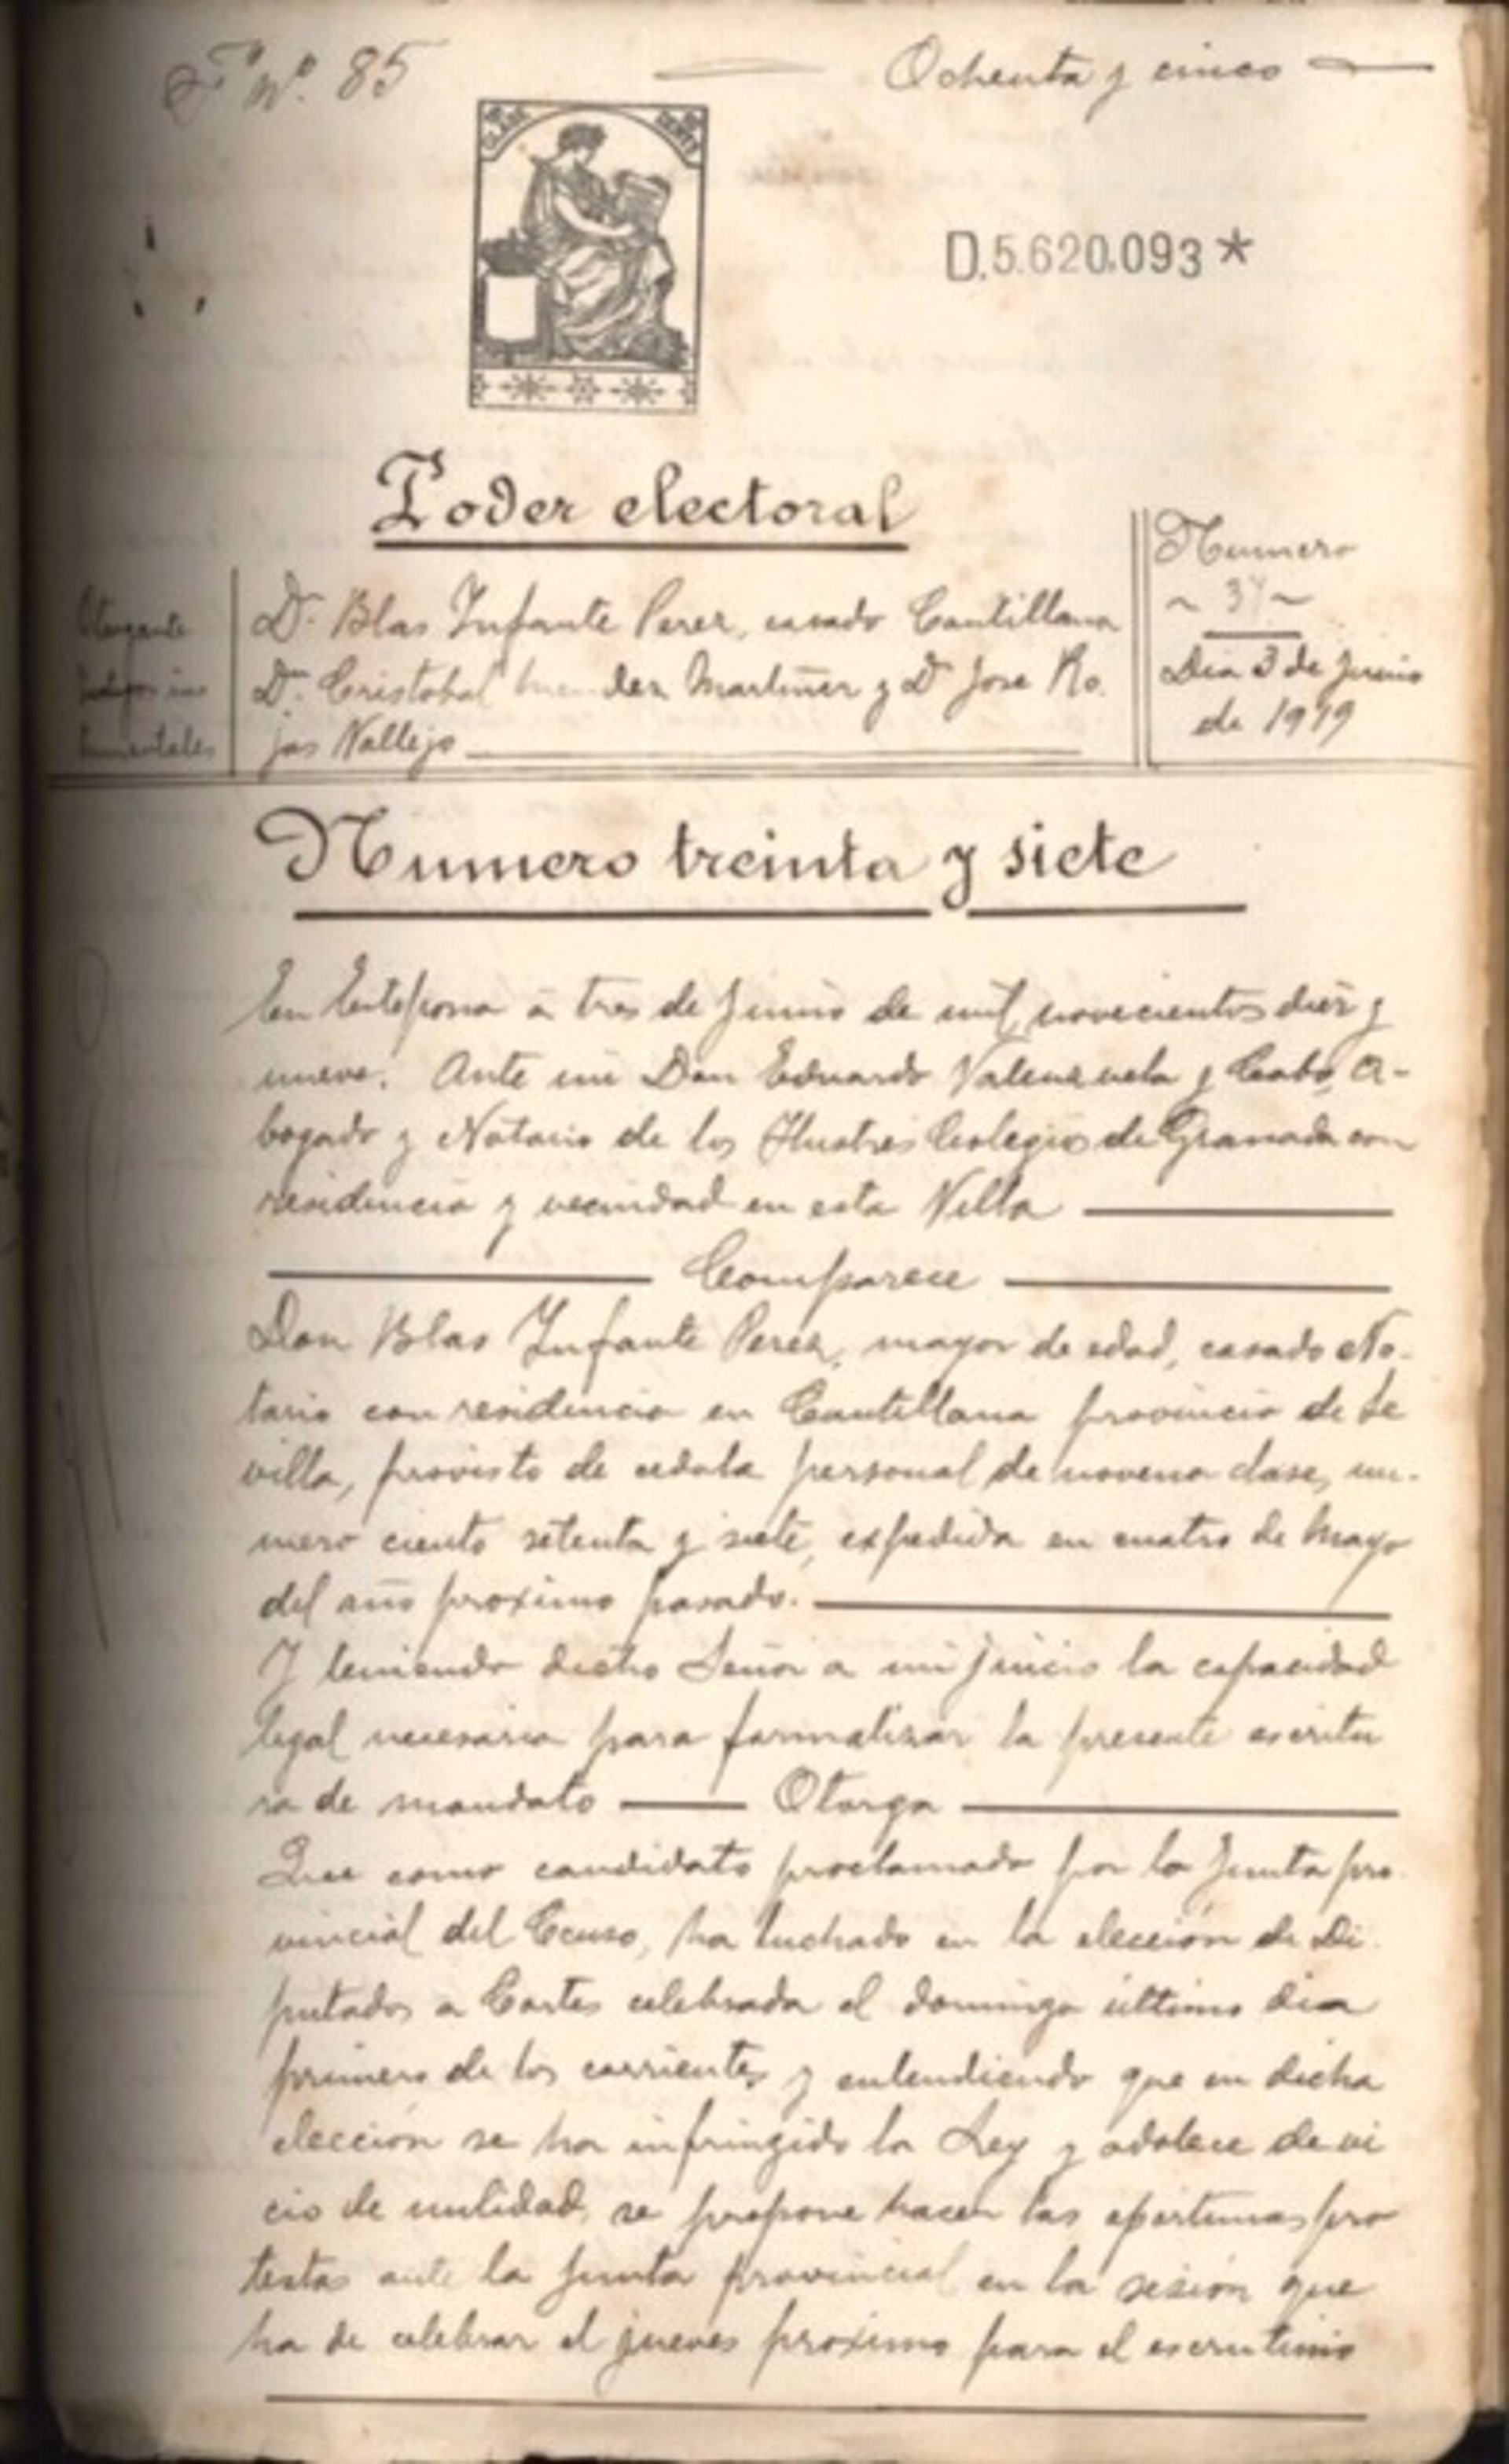 Fº Nº. 85
Ochenta y cinco
D.5.620.093*
Poder electoral
Otorgante
D. Blas Infante Perez, casado Cantillana
Numero
~ 37 ~
testigos ins
D. Cristobal Mendez Martinez y D Jose Ro.
Dia 3 de Junio
trumentales
jas Vallejo
de 1919
Numero treinta y siete
En Estepona a tres de Junio de mil novecientos diez y
nueve. Ante mi Don Eduardo Valenzuela y Cabo, A-
bogado y Notario de los Ilustres Colegios de Granada con
residencia y vecindad en esta Villa
Comparece
Don Blas Infante Perez, mayor de edad, casado No-
tario con residencia en Cantillana provincia de Se
villa, provisto de cedula personal de novena clase, nu-
mero ciento setenta y siete, expedida en cuatro de Mayo
del año proximo pasado.
Y teniendo dicho Señor a mi juicio la capacidad
legal necesaria para formalizar la presente escritu
ra de mandato Otorga
Que como candidato proclamado por la Junta pro
vincial del Censo, ha luchado en la elección de Di
putados a Cortes celebrada el domingo último dia
primero de los corrientes y entendiendo que en dicha
elección se ha infringido la Ley y adolece de vi
cio de nulidad, se propone hacer las oportunas pro
testas ante la Junta provincial en la sesión que
ha de celebrar el jueves proximo para el escrutinio